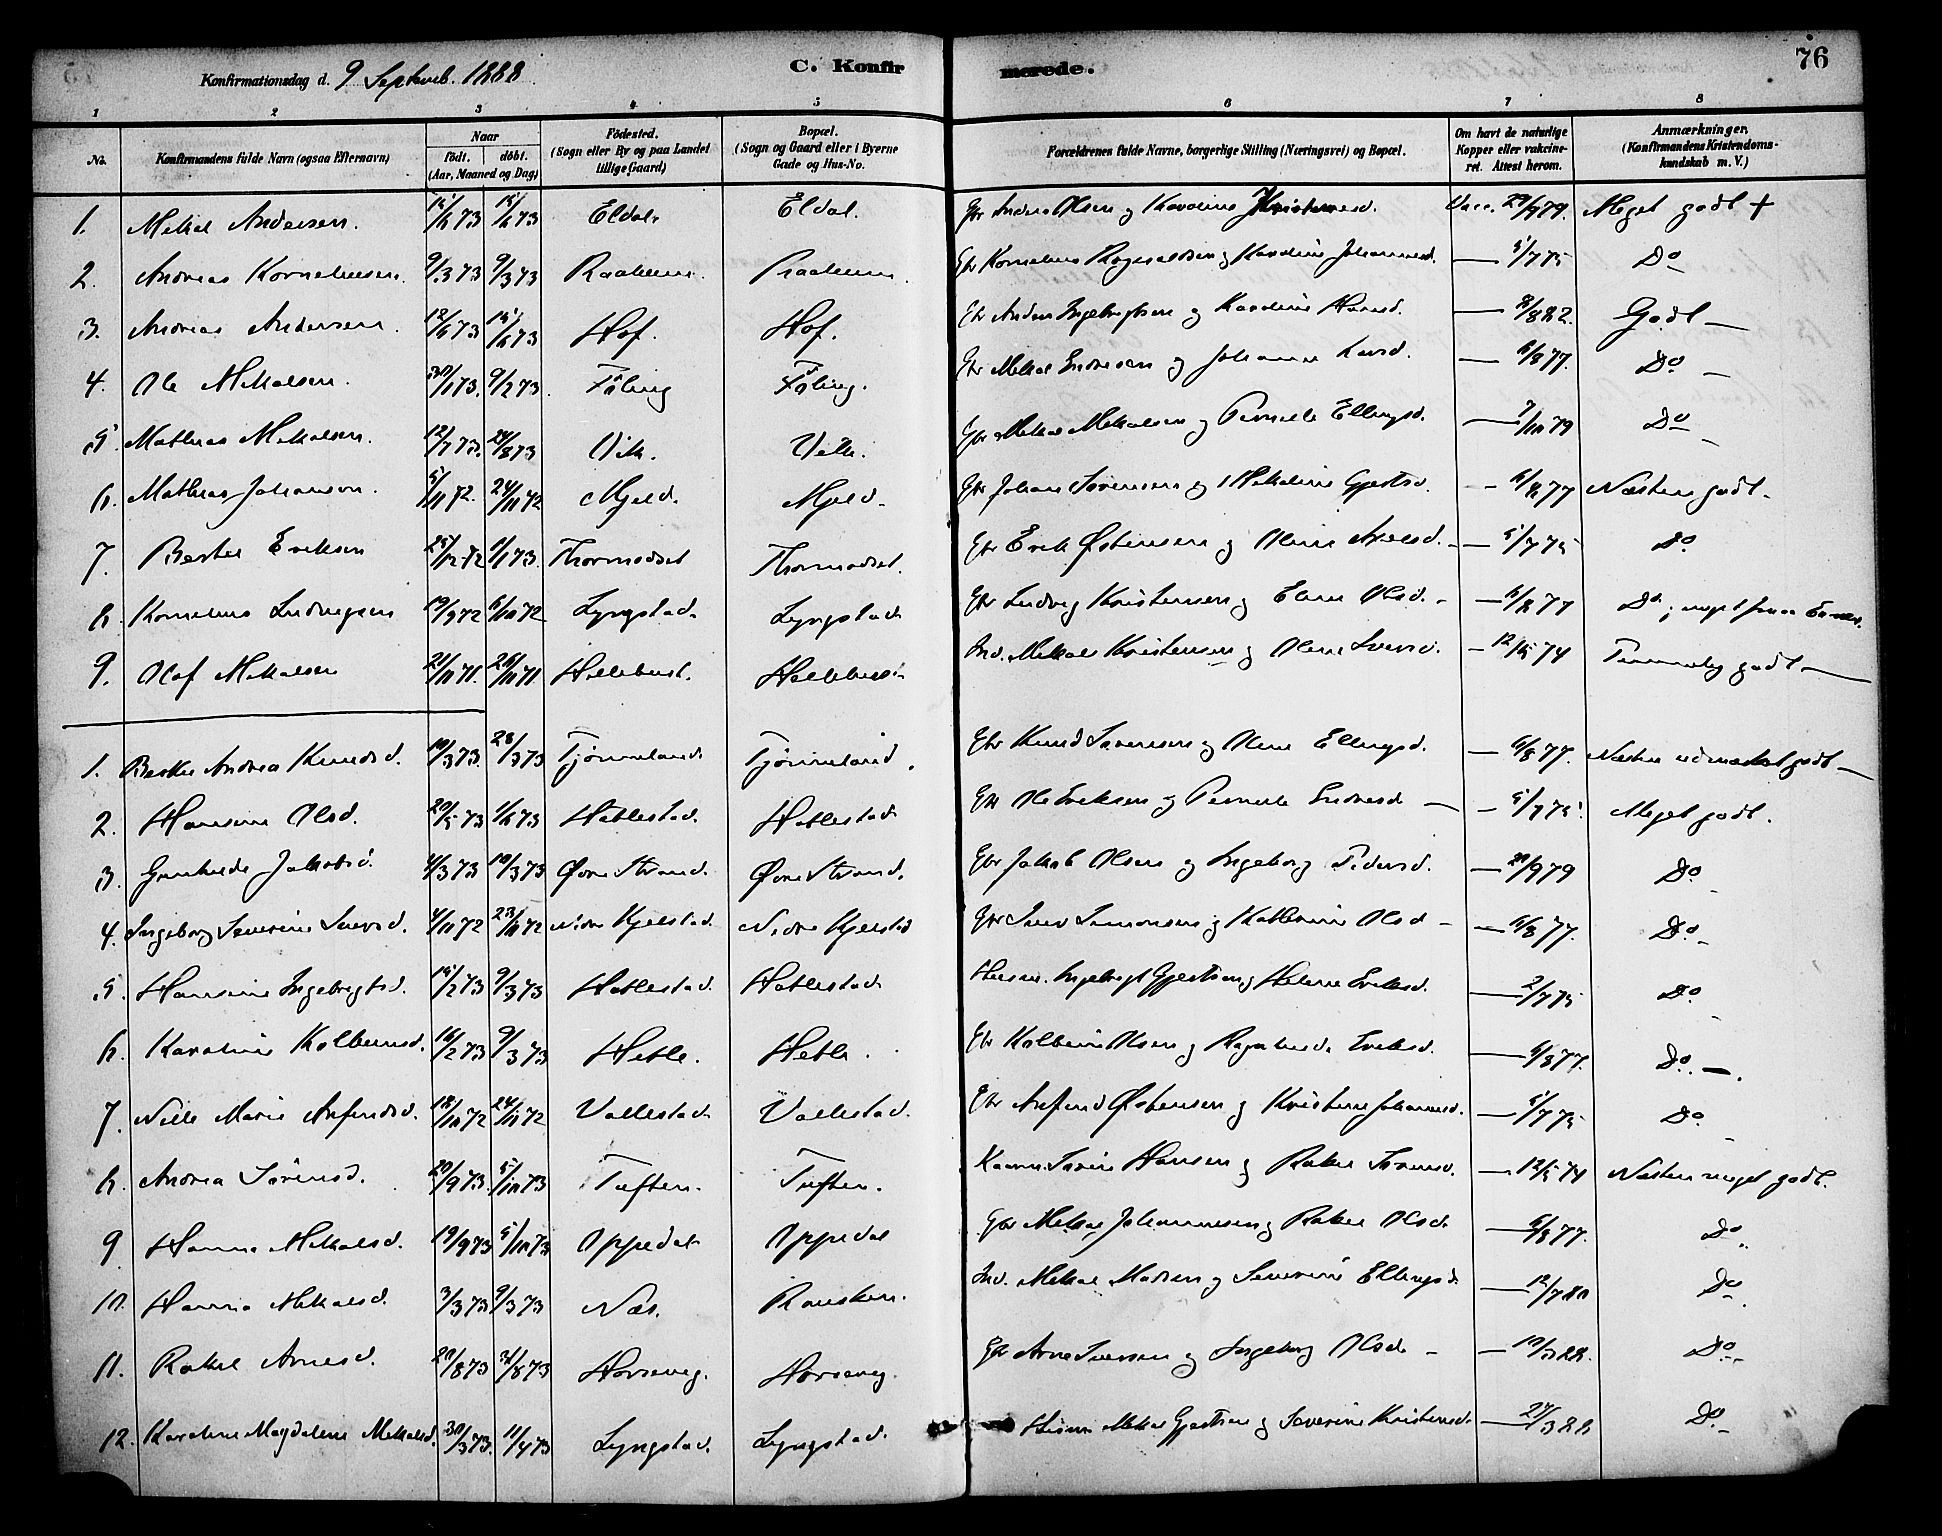 76
Konfirmationsdag d. 9 Septemb. 1888 C. Konfirmerede.
1 2 3 4 5 6 7 8
No. Konfirmandens fulde Navn (ogsaa Efternavn) Naar födt. döbt. (Aar, Maaned og Dag) Födested. (Sogn eller By og paa Landet tillige Gaard) Bopæl. (Sogn og Gaard eller i Byerne Gade og Hus-No. Forældrenes fulde Navne, borgerlige Stilling (Næringsvei) og Bopæl. Om havt de naturlige Kopper eller vakcineret. Attest herom. Anmærkninger. (Konfirmandens Kristendomskundskab m. V.)
1. Mikal Andersen. Eldal Eldal. Gbr Anders Olsen og Karoline Vacc. 29/9 79. Meget godt +
2. Andreas Korneliusen. 9/3 73 9/3 73 Raaheim. Raaheim. Gbr Kornelius og Karoline Johannesd. — 5/7 75 Do
3. Andreas Andersen. Hof. Hof. Gbr Anders Ingebrigtsen og Karoline Hansd. Godt —
4. Ole Mikalsen. 30/1 73. 9/2 73. Föling Föling. Gbr Mikal Endresen og Johanne — 6/8 77. Do —
5 Mathias Mikalsen. 12/7 73. 24/8 73 Vik. Vik. Gbr Mikal Mikalsen og Pernille Ellingsd. — 7/10 79 Do
6. Mathias Johansen. 5/11 72. 24/11 72 Mjeld. Mjeld. Gbr Johan Sørensen og Mikaline Gjertsd. — 6/8 77 Næsten godt.
7. Bertel Eriksen 25/12 72 1/1 73. Thormodset Thormodset. Gbr Erik Østensen og Oline — 5/7 75 Do
8. Kornelius Ludvigsen 19/9 72 6/10 72 Lyngstad. Lyngstad Gbr Ludvig Kristensen og Elen Olsd. — 6/8 77 Do
9. Olaf Mikalsen 21/10 71. 26/10 71. Hellebust. Hellebust Ind. Mikal Kristensen og Oline Iversd. Temmelig godt —
1. Berthe Andrea Knudsd. 19/3 73. 23/3 73 Tjønneland Tjønneland. Gbr Knud Iversen og Oline Ellingsd. — 6/8 77. Næsten udmærket godt —
2. Hansine Olsd. Hatlestad. Hatlestad Gbr Ole Eriksen og Pernille Endresd — 5/7 75. Meget godt.
3. Gunhilde Jakobsd. 4/3 73 19/3 73 Øvre Strand. Øvre Strand. Gbr Jakob Olsen og Ingeborg Pedersd. Do
4. Ingeborg Severine Iversd. 4/11 72 23/11 72 Nedre Kjelstad. Nedre Kjelstad Gbr Iver Simonsen og Kathrine Olsd — 6/8 77. Do
5. Hansine Ingebrigtsd. 15/2 73 9/3 73 Hatlestad. Hatlestad Husm. Ingebrigt Gjertsen og Helene Eriksd. — 2/7 75 Do
6. Karoline Kolbeinsd. 16/2 73 9/3 73 Hetle. Hetle. Gbr Kolbein Olsen og Ragnhilde Eriksd. — 6/8 77. Do —.
7. Nille Marie Anfindsd. 18/10 72 24/11 72 Vallestad Vallestad. Gbr Anfind Østensen og Kristine Johannesd. — 5/7 75 Do
8. Andrea Sörensd. 20/9 73. 5/10 73 Tuften. Tuften. Sören Hansen og Rakel Iversd. Næsten meget godt.
9. Hanna Mikalsd. 19/9 73 5/10 73 Oppedal Oppedal Gbr Mikal Johannesen og Rakel Olsd — 6/8 77. Do
10. Hanna Mikalsd. 3/3 73 9/3 73 Næs. Ind. Mikal Madsen og Severine Ellingsd. — 12/7 80 Do
11. Rakel Arnesd. 20/8 73 31/8 73 Horsevig. Horsevig. Gbr Arne Iversen og Ingeborg Olsd — Do
12. Karoline Magdalene Mikalsd. 30/3 73. 11/4 73 Lyngstad Lyngstad. Husm Mikal Gjertsen og Severine Kristensd. — 27/3 88 Do